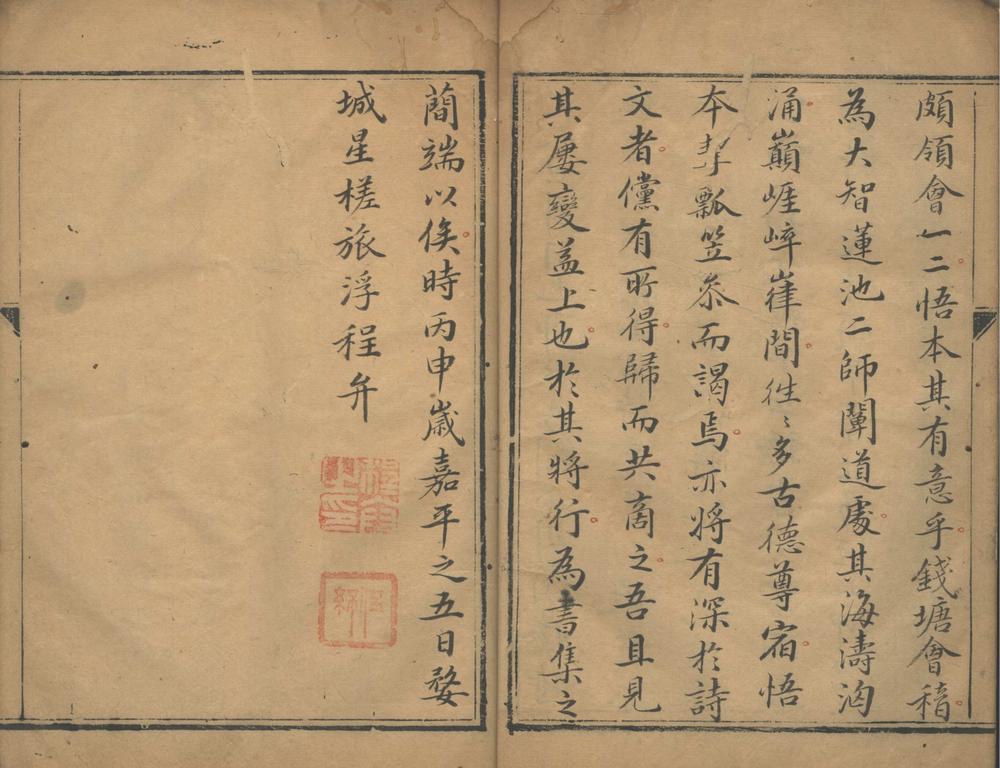 頗領會一二悟本其有意乎錢塘會稽
為大智蓮池二師闡道處其海濤洶
涌巔崕崒嵂間徃〻多古德尊宿悟
本挈瓢笠叅而謁焉亦將有深於詩
文者儻有所得歸而共商之吾且見
其屢變益上也於其將行為書集之
蕳端以俟時丙申嵗嘉平之五日婺
城星槎旅浮程弁